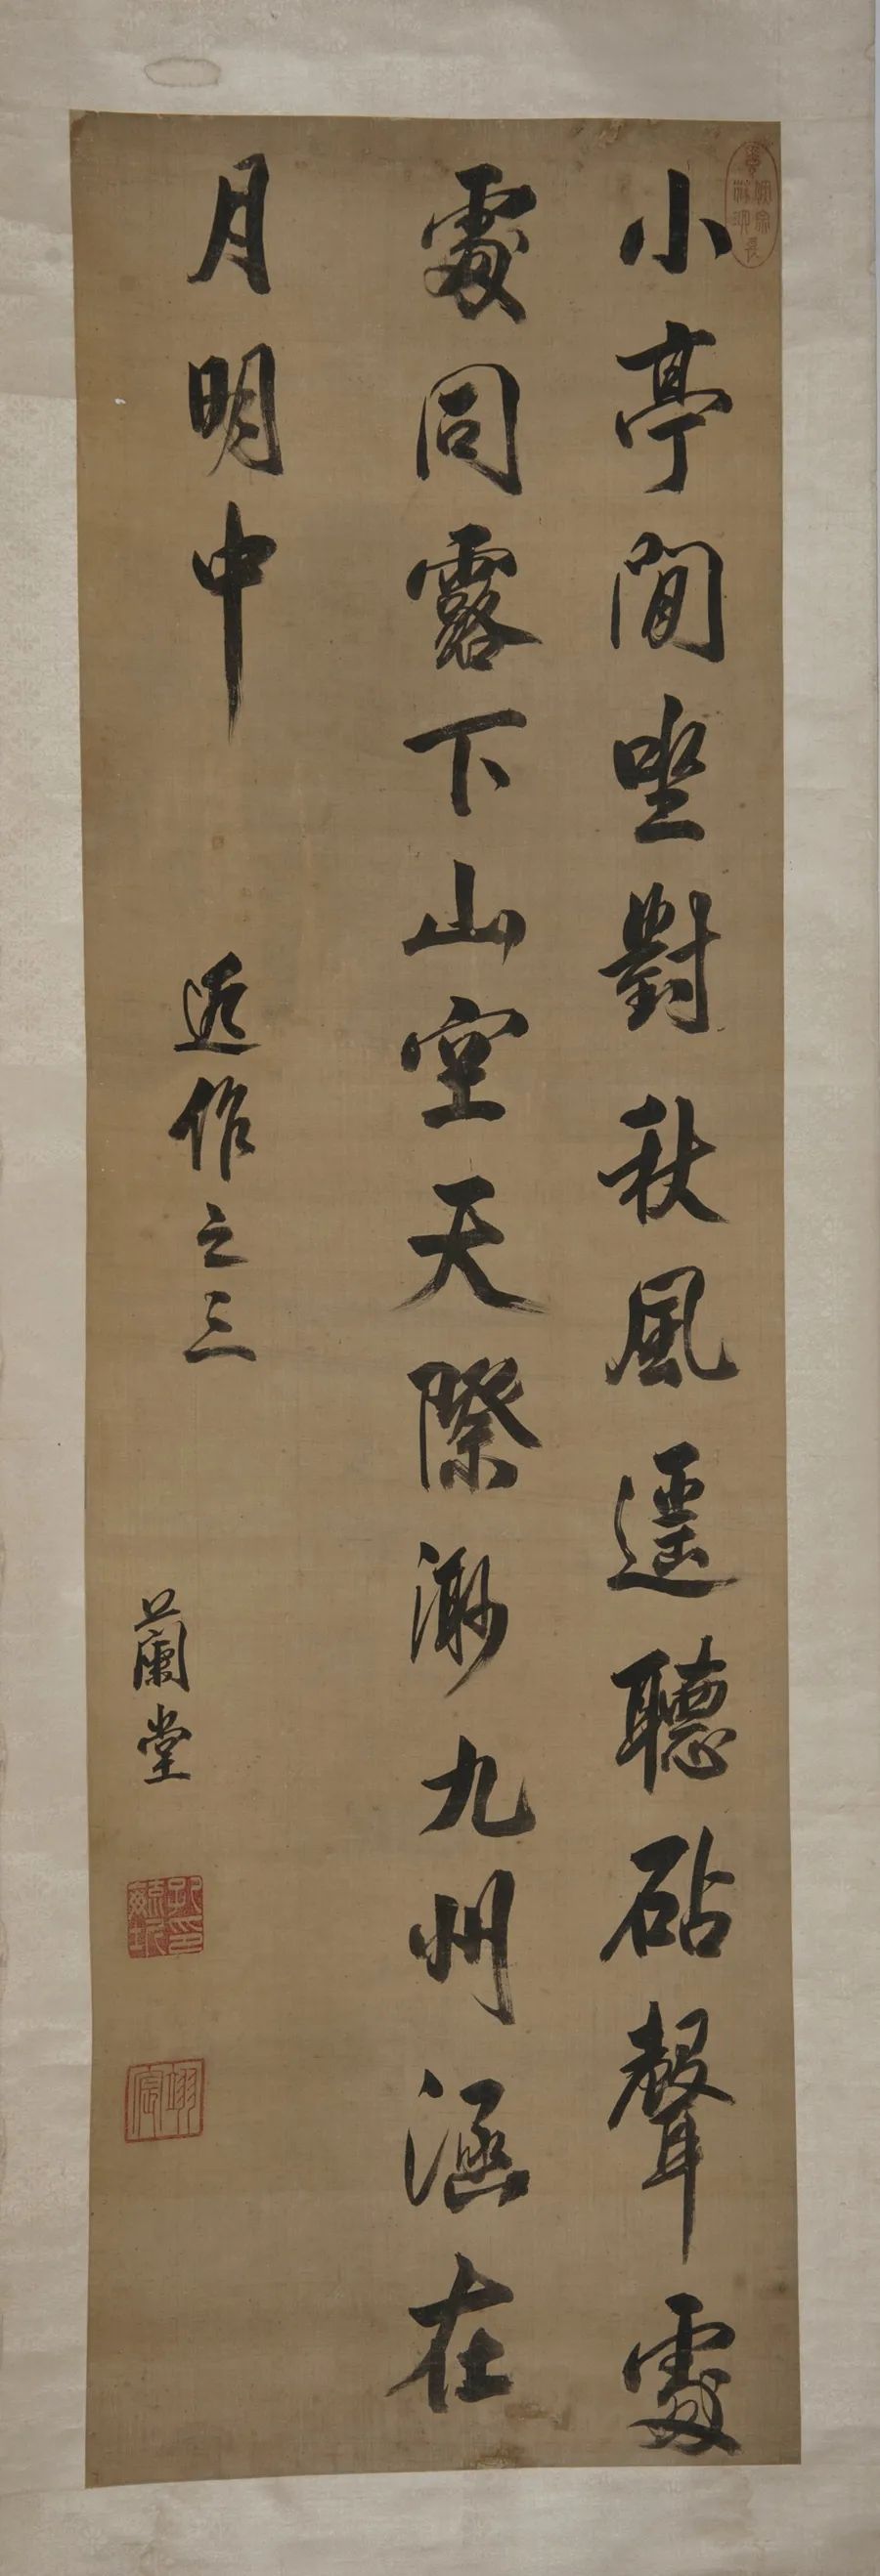 小亭閒坐對秋風遥聽砧聲處
處同露下山空天際渺九州涵在
月明中
近作之三
蘭堂